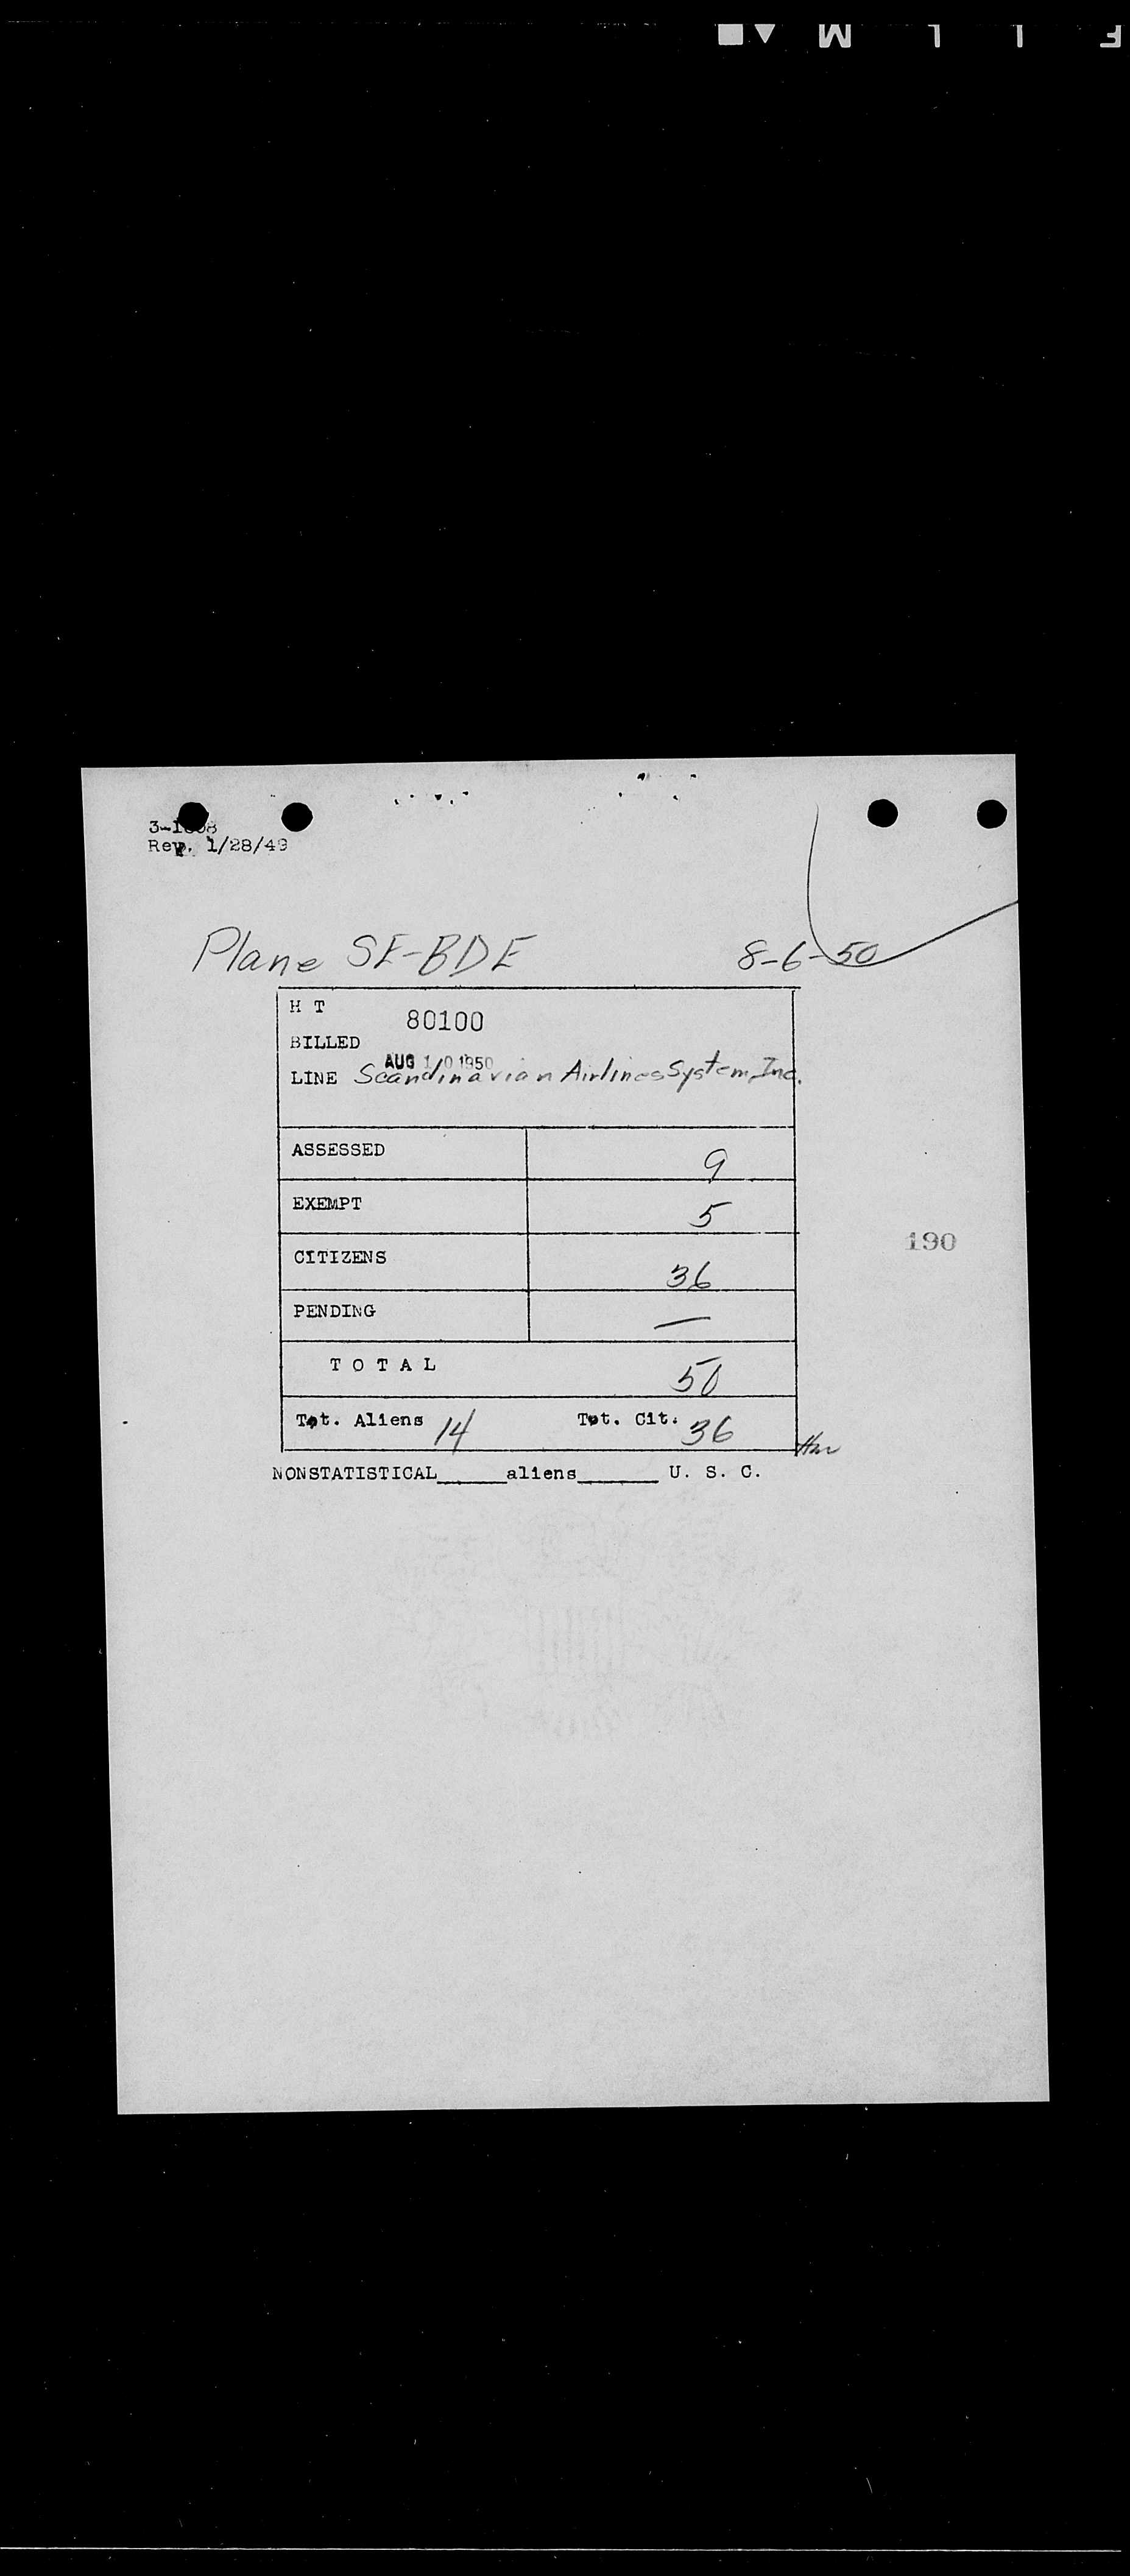 Rev. 1/28/49
Plane SE-BDE 8-6-50
H T
80100
BILLED
AUG 10 1950
LINE Scandinavian Airlines System, Inc.
ASSESSED 9
EXEMPT 5
190
CITIZENS 36
PENDING —
TOTAL 50
Tot. Aliens 14 Tot. Cit. 36
NONSTATISTICAL______aliens_______ U. S. C.